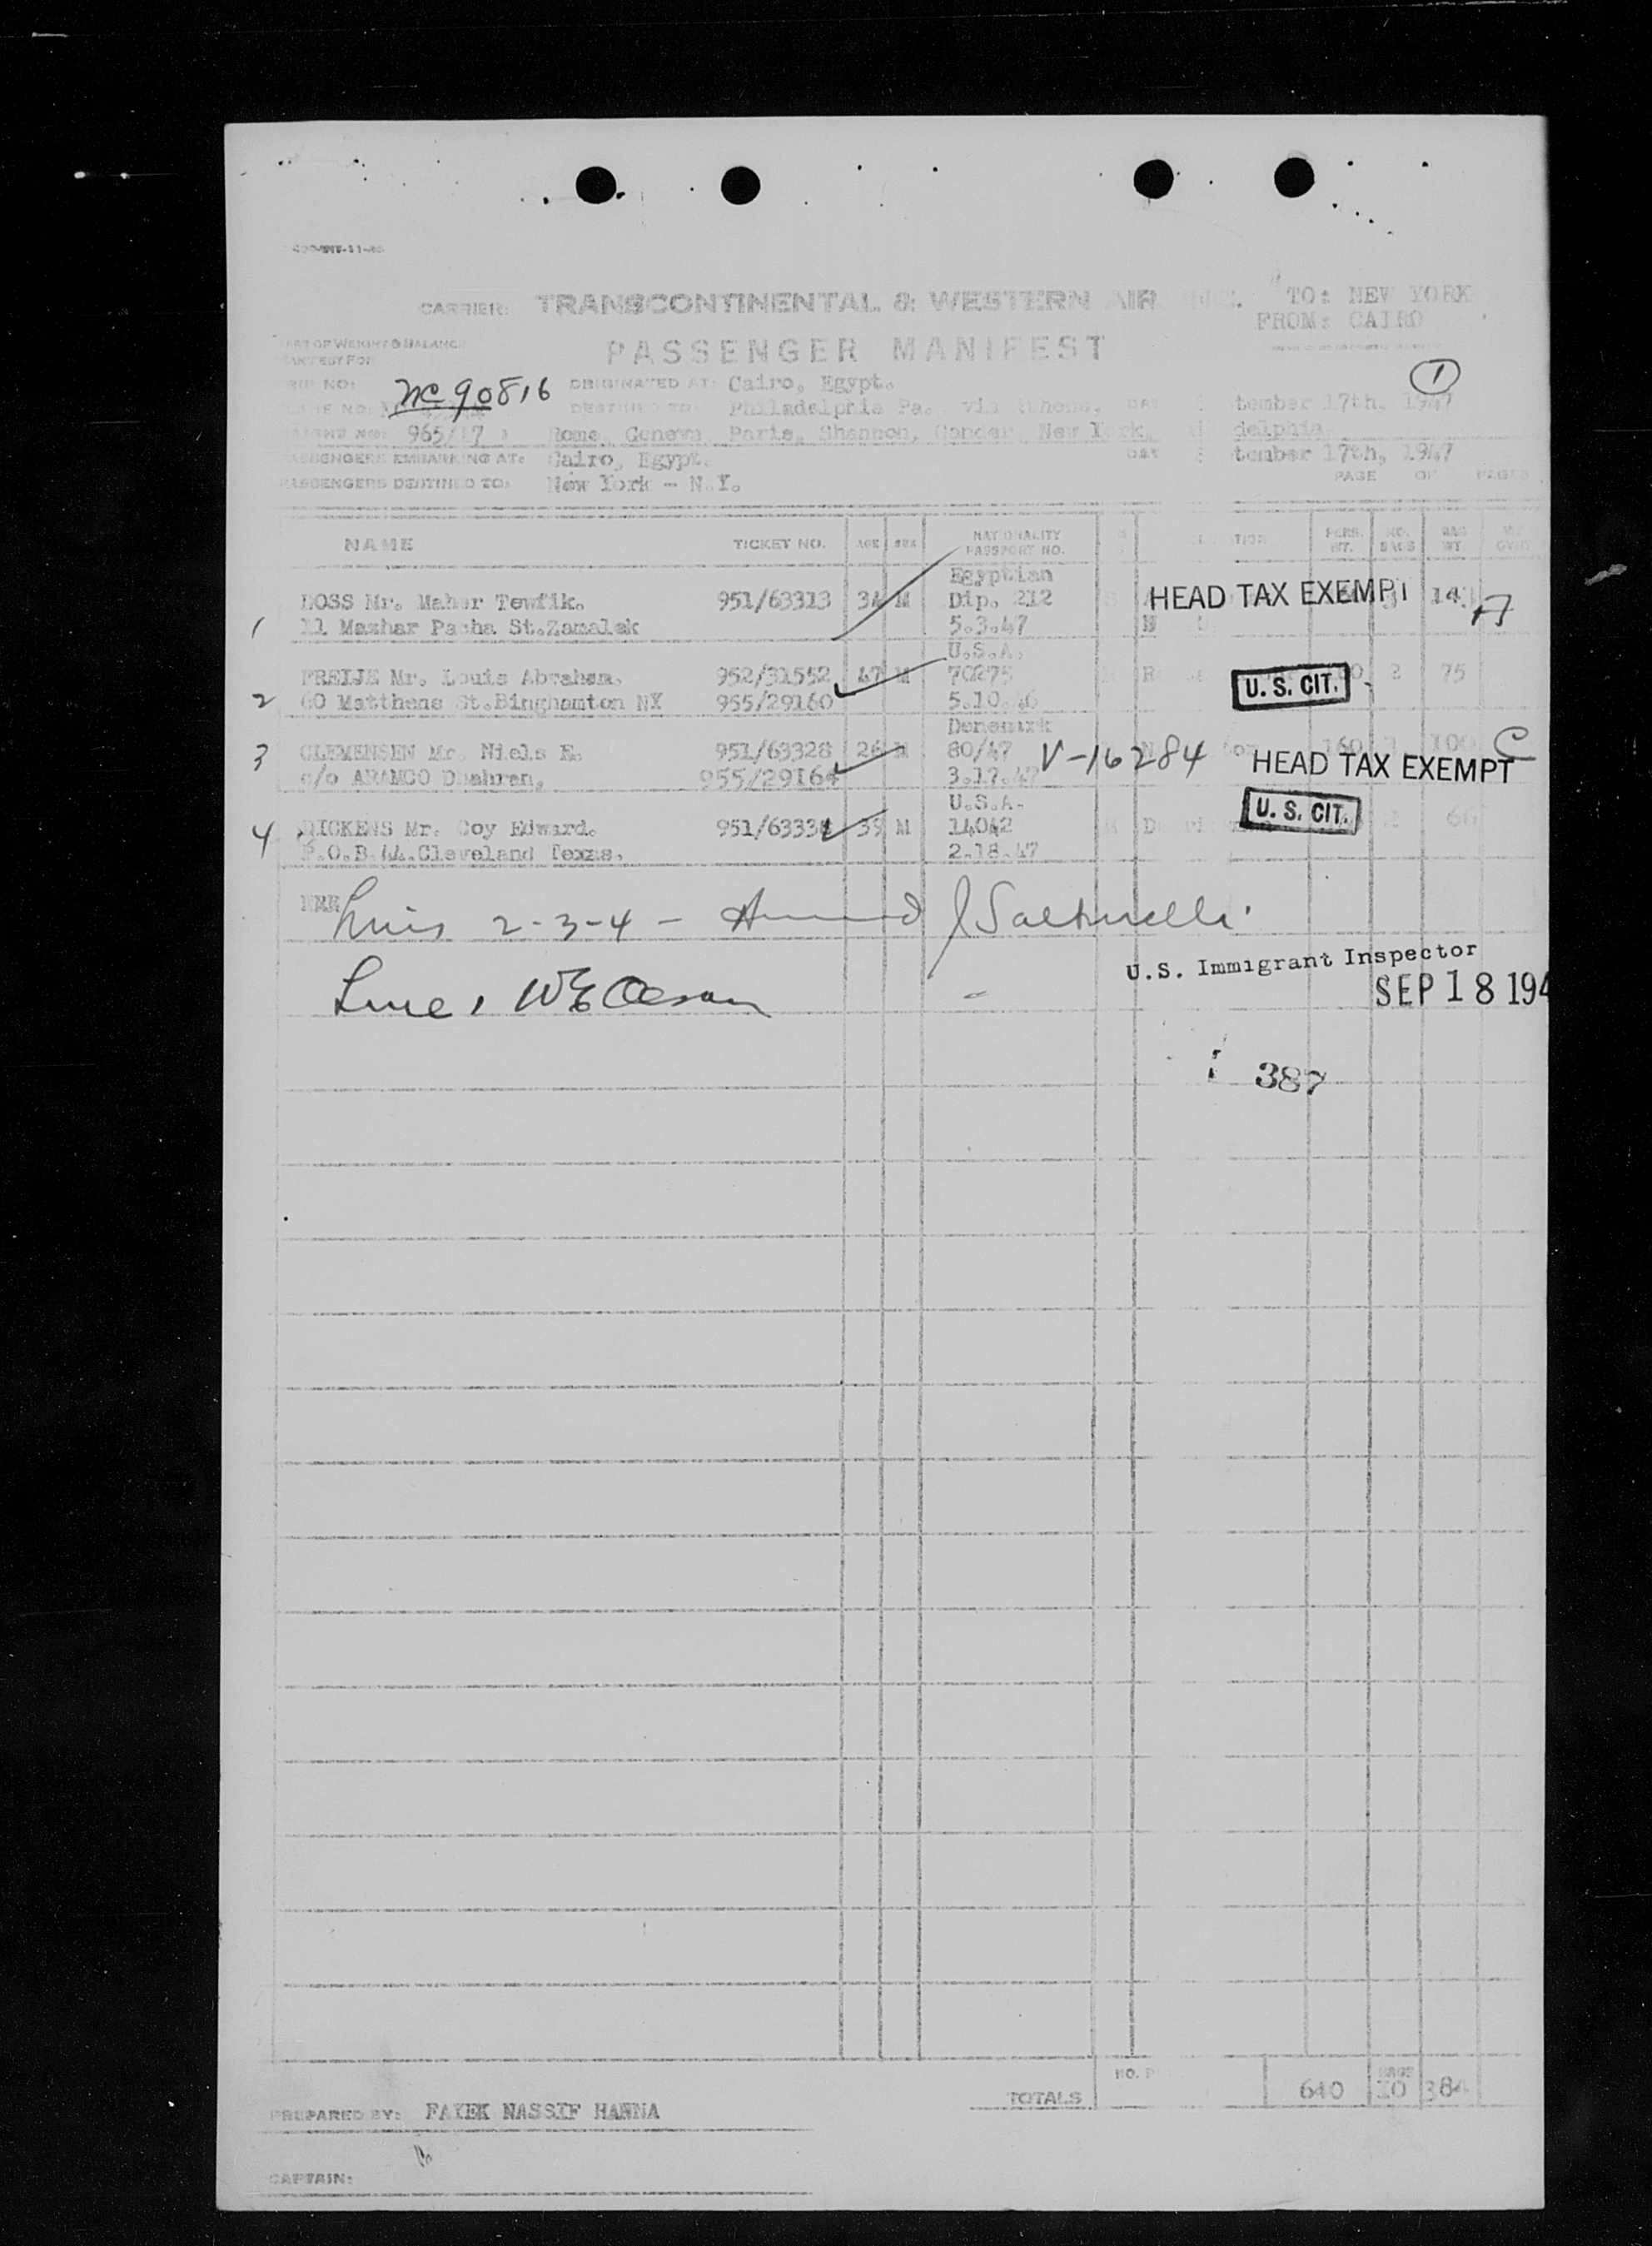 CARRIER: TRANSCONTINENTAL & WESTERN AIR
TO: NEW YORK
FROM: CAIRO
PASSENGER MANIFEST
1
NC 90816
ORIGINATED AT: Cairo, Egypt.
DESTINED TO: Philadelphia Pa. via Athens, tember 17th, 1947
965/17 Rome, Geneva, Paris, Shannon, Gander, New York, delphia
PASSENGERS EMBARKING AT: Cairo, Egypt. tember 17th, 1947
PASSENGERS DESTINED TO: New York - N.Y. PAGE OF PAGES
NAME TICKET NO. AGE SEX NATIONALITY PASSPORT NO. PERS. WT. NO. BAGS BAG WT.
Egyptian
DOSS Mr. Maher Tewfik. 951/63313 34 M Dip. 212 HEAD TAX EXEMPT 143 A
1 11 Mazhar Pacha St.Zamalek 5.3.47
U.S.A.
FREIJE Mr. Louis Abraham. 952/31552 47 M 70275 U. S. CIT. 2 75
2 60 Matthews St.Binghamton NY 955/29160 5.10.46
Denemark
3 CLEMENSEN Mr. Niels E. 951/63328 26 M 80/47 V-16284 160 100 C
c/o ARAMCO Dhahran, 955/29164 3.17.47 HEAD TAX EXEMPT
U.S.A. U. S. CIT.
4 DICKENS Mr. Coy Edward. 951/63338 39 M 14042 66
P.O.B 44.Cleveland Texas. 2.18.47
Lines 2-3-4 -
U.S. Immigrant Inspector
Line 1
SEP 18 194
387
TOTALS 640 10 384
PREPARED BY: FAYEK NASSIF HANNA
CAPTAIN: